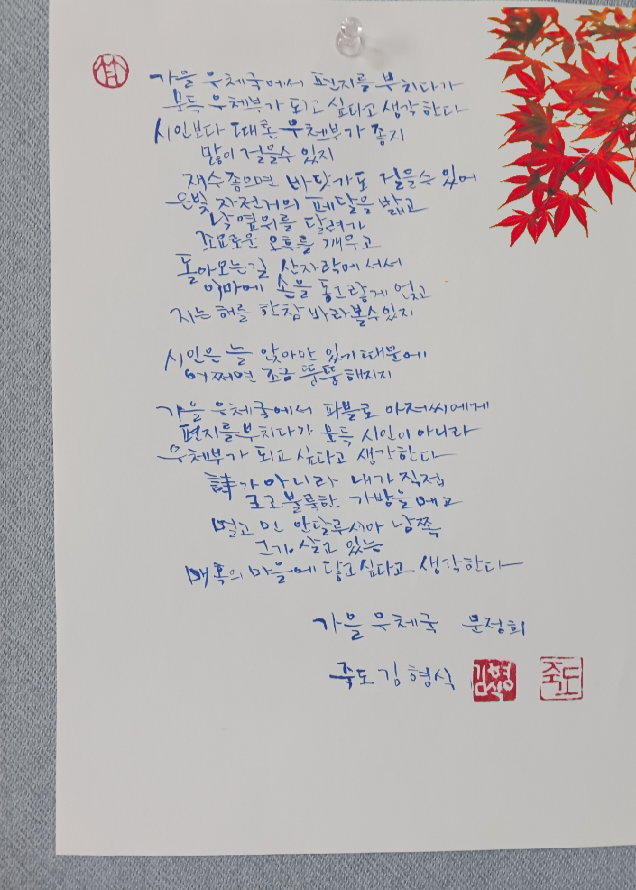 가을 우체국에서 편지를 부치다가
문득 우체부가 되고 싶다고 생각한다
시인보다 때론 우체부가 좋지
많이 걸을수 있지
재수좋으면 바닷가도 걸을수 있어
은빛 자전거의 페달을 밟고
낙엽위를 달려가
조요로운 오후를 깨우고
돌아오는길 산자락에 서서
이마에 손을 동그랗게 얹고
지는 해를 한참 바라볼수있지
시인은 늘 앉아만 있기때문에
어쩌면 조금 뚱뚱해지지
가을 우체국에서 파블로 아저씨에게
편지를부치다가 문득 시인이 아니라
우체부가 되고 싶다고 생각한다
詩가 아니라 내가 직접
크고불룩한 가방을 메고
멀고 먼 안달루시아 남쪽
그가 살고 있는
매혹의 마을에 닿고싶다고 생각한다
가을 우체국 문정희
죽도 김형식
김형식
죽도